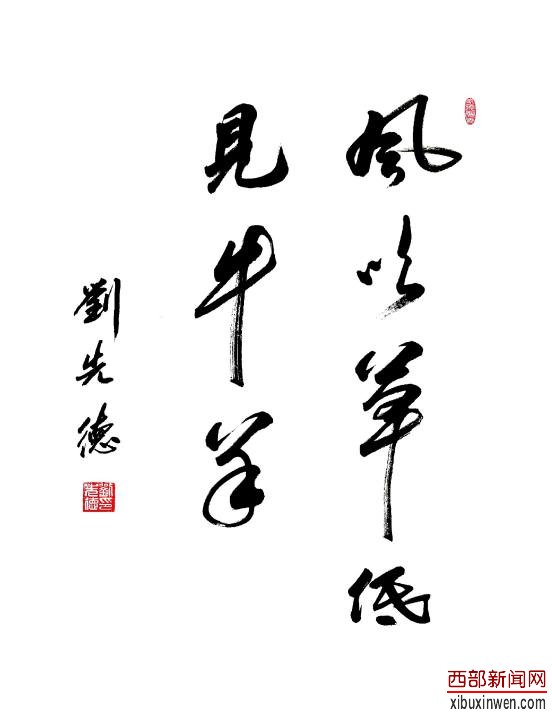 風吹草低
見牛羊
劉先德
西部新闻网
xibuxinwen.com